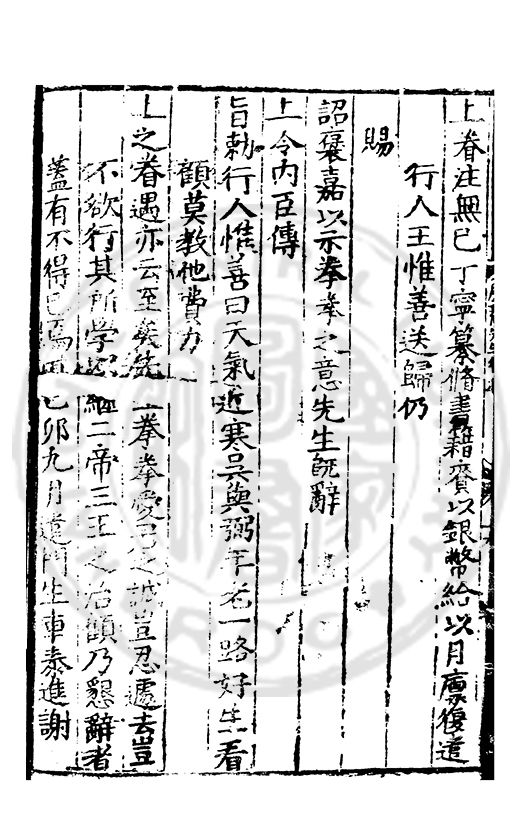 上眷注無已丁寧纂脩書籍賚以銀幣給以月廪復遣
行人王惟善送歸仍
賜
詔褒嘉以示拳拳之意先生既辭
上令内臣傳
旨勑行人惟善曰天氣近寒吳與弼年老一路好生看
顧莫教他費力
上之眷遇亦云至矣先生拳拳愛君之誠豈忍遽去豈
不欲行其所學以繼二帝三王之治顧乃懇辭者
蓋有不得已焉耳己卯九月遣門生車泰進謝